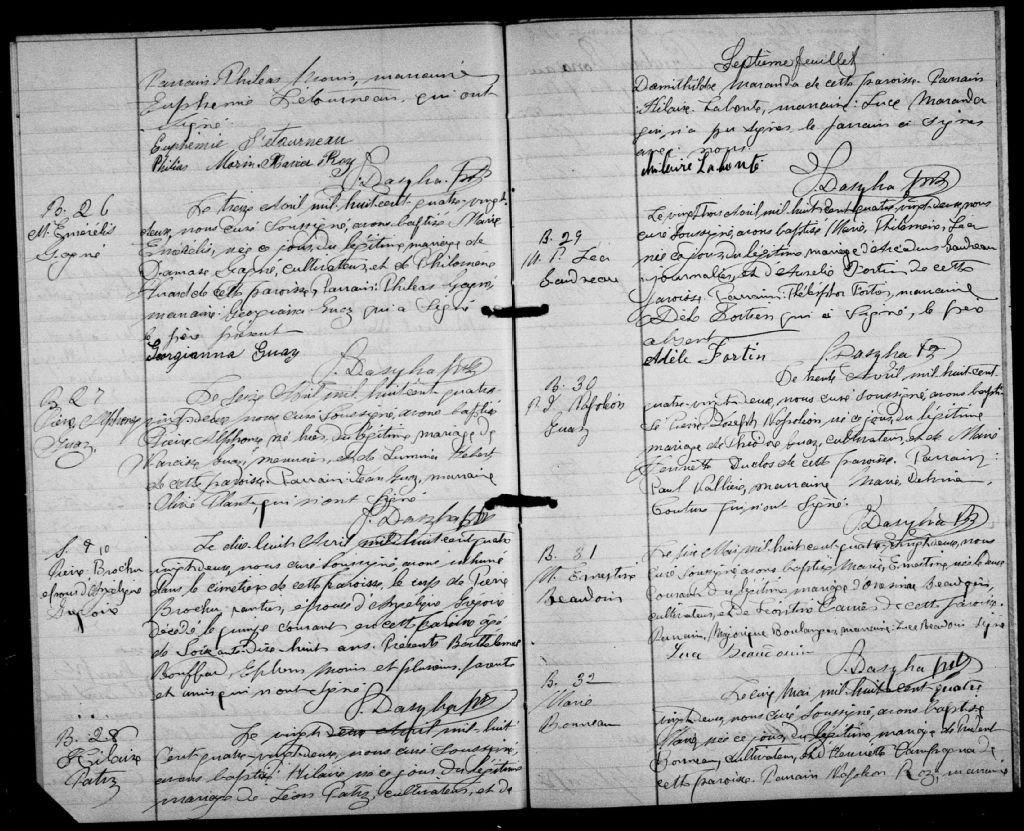 Parrain Phileas Morin, marraine
Euphemie Létourneau, qui ont
signé.
Euphémie Létourneau
Philias Morin Maria Roy
J. Dasylva ptr
B. 26
M. Emérélis
Gagné
Le treize Avril mil-huit-cent-quatre-vingt-
deux, nous curé soussigné, avons baptisé Marie
Emérélis, née ce jour, du légitime mariage de
Damase Gagné, cultivateur, et de Philomène
Huard de cette paroisse, Parrain: Phileas Gagné
marraine: Georgianna Guay qui a signé
le père présent
Georgianna Guay
J. Dasylva ptr
B. 27
Pierre Alphonse
Guay
Le seize Avril mil-huit-cent-quatre
vingt-deux, nous curé soussigné, avons baptisé
Pierre Alphonse, né hier, du légitime mariage de
Narcisse Guay, menuisier, et de Hébert
de cette paroisse. Parrain: Jean Guay, marraine
Olive Plant, qui n'ont signé.
J. Dasylva ptr
S. 10
Pierre Brochu
époux d'Angélique
Grégoire
Le dix-huit Avril mil-huit-cent-quatre
vingt-deux, nous curé soussigné, avons inhumé
dans le cimetière de cette paroisse, le corps de Pierre
Brochu, rentier, époux d'Angélique Grégoire
décédé le quinze courant en cette paroisse agé
de soixante-dix-huit ans. Présents Barthelemi
Bouffard, Ephrem Morin et plusieurs parents
et amis qui n'ont signé.
J. Dasylva ptr
B. 28
Hilaire
Patry
Le vingt-deux Avril mil-huit
cent-quatre-vingt-deux, nous curé soussigné
avons baptisé Hilaire né ce jour, du légitime
mariage de Léon Patry, cultivateur, et de
Septième feuillet
Domithilde Maranda de cette paroisse. Parrain
Hilaire Labonté, marraine: Luce Maranda
qui n'a pu signer, le parrain a signé
avec nous.
Hilaire Labonté
J. Dasylva ptr
B. 29
M. P. Léa
Gaudreau
Le vingt-trois Avril mil-huit-cent-quatre-vingt-deux, nous
curé soussigné, avons baptisé Marie, Philomène, Léa
née ce jour, du légitime mariage d'Arcadius Gaudreau
journalier, et d'Aurélie Fortin de cette
paroisse. Parrain: Fortin, marraine
Adèle Fortin qui a signé, le père
absent
Adèle Fortin
J. Dasylva ptr
B. 30
P. J. Napoléon
Guay
Le trente Avril mil-huit-cent-
quatre-vingt-deux, nous curé soussigné, avons bapti-
sé Pierre, Joseph, Napoléon, né ce jour, du légitime
mariage de Théodore Guay, cultivateur, et de Marie
Duclos de cette paroisse. Parrain:
Paul Vallière, marraine Marie Delvina
Couture qui n'ont signé.
J. Dasylva ptr
B. 31
M. Ernestine
Beaudoin
Le six Mai mil-huit-cent-quatre-vingt-deux, nous
curé soussigné avons baptisé Marie, Ernestine, née le deux
courant du légitime mariage d'Onésime Beaudoin,
cultivateur, et de de cette paroisse.
Parrain, Majorique Boulanger, marraine: Luce Beaudoin signé
Luce Beaudoin
J. Dasylva ptr
B. 32
Marie
Bonneau
Le cinq Mai mil-huit-cent-quatre
vingt-deux, nous curé soussigné, avons baptisé
Marie, née ce jour, du légitime mariage de Prudent
Bonneau, cultivateur, et d'Henriette Campagna de
cette paroisse. Parrain Napoléon Roy, marraine